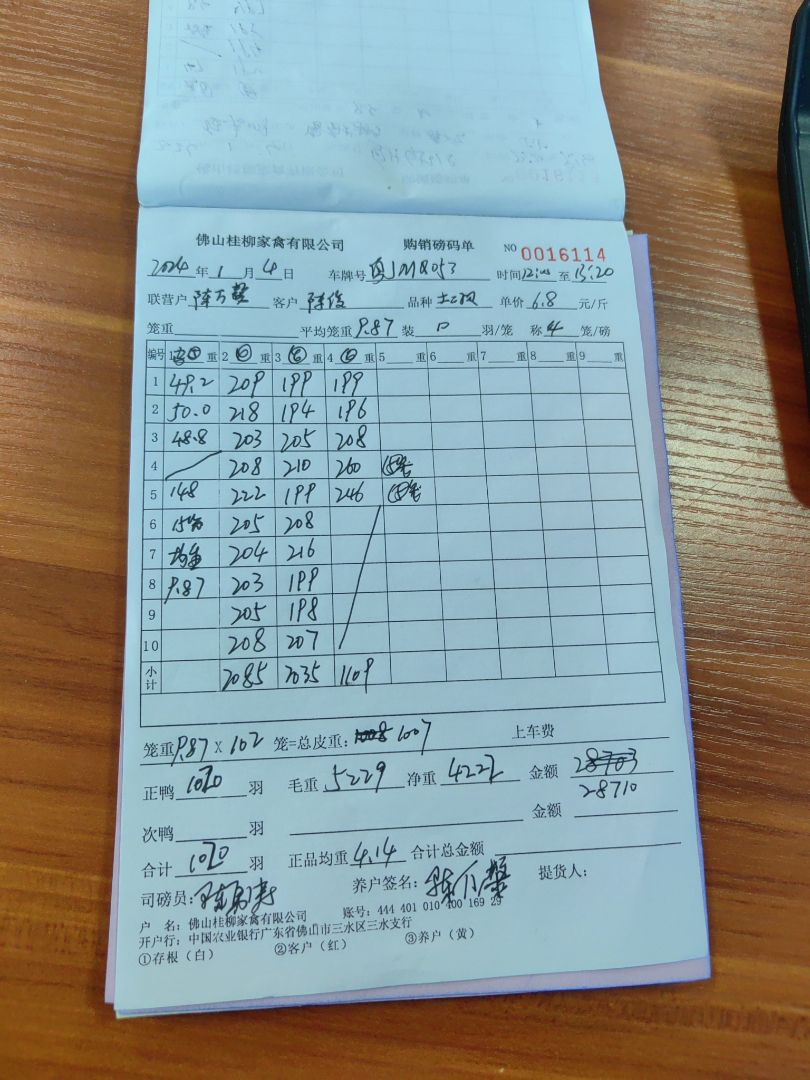 佛山桂柳家禽有限公司 购销磅码单 NO 0016114
2024年1月4日 车牌号 M8053 时间12:00至13:20
联营户 陈万 客户 陈 品种 单价6.8元/斤
笼重 平均笼重9.87装10羽/笼 称4笼/磅
编号 1 重 2 重 3 重 4 重 5 重 6 重 7 重 8 重 9 重
1 49.2 209 199 199
2 50.0 218 194 196
3 48.8 203 205 208
4 208 210 260 ⑤笼
5 148 222 199 246 ⑤笼
6 15 205 208
7 均重 204 216
8 9.87 203 199
9 205 198
10 208 207
小计 2085 2035 1109
笼重9.87×102笼=总皮重: 1007 上车费
正鸭1020羽 毛重5229净重4222 金额28703
28710
次鸭 羽 金额
合计1020羽 正品均重4.14合计总金额
司磅员: 养户签名:陈万 提货人;
户 名:佛山桂柳家禽有限公司 账号:444 401 010 400 169 29
开户行:中国农业银行广东省佛山市三水区三水支行
①存根(白) ②客户(红) ③养户(黄)